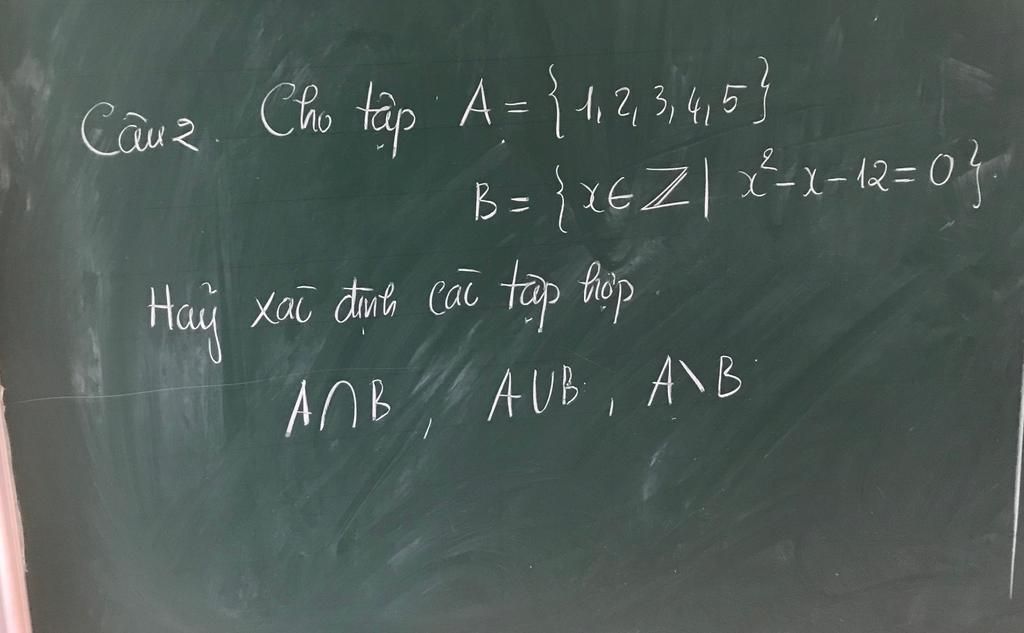 Câu 2. Cho tập A = {1, 2, 3, 4, 5}
B = {x ∈ ℤ | x² - x - 12 = 0}.
Hãy xác định các tập hợp
A ∩ B, A ∪ B, A \ B